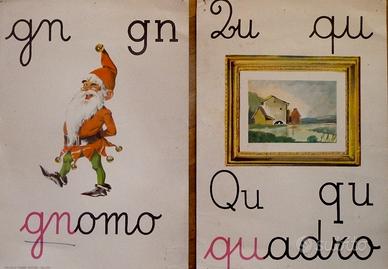 gn gn
gnomo
Qu qu
Qu qu
quadro
subito